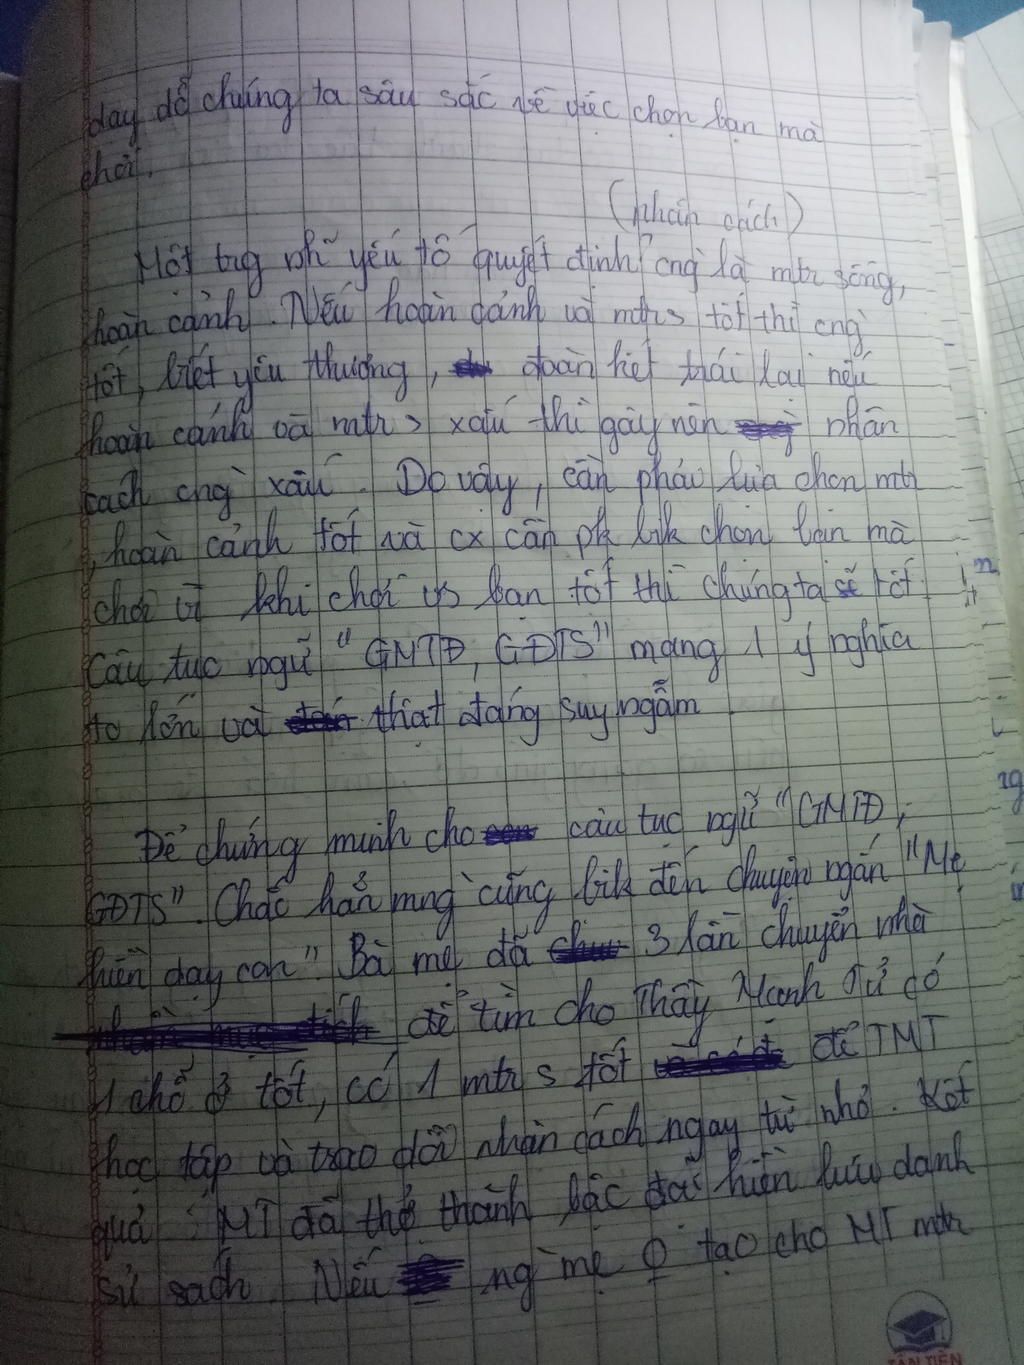 dạy dỗ chúng ta sâu sắc về việc chọn bạn mà
chơi.
(nhân cách)
Một trg nh~ yếu tố quyết định cng` là mtr sống,
hoàn cảnh. Nếu hoàn cảnh và mtr s tốt thì cng`
tốt, biết yêu thương, đoàn kết trái lại nếu
hoàn cảnh và mtr s xấu thì gây nên nhân
cách cng` xấu. Do vậy, cần phải lựa chọn mtr
, hoàn cảnh tốt và cx cần pk bik chọn bạn mà
chơi vì khi chơi vs bạn tốt thì chúng ta sẽ tốt.
Câu tục ngữ "GMTĐ, GĐTS" mang 1 ý nghĩa
to lớn và thật đáng suy ngẫm.
Để chứng minh cho câu tục ngữ "GMTĐ,
GĐTS". Chắc hẳn mng` cũng bik đến chuyện ngắn "Mẹ
hiền dạy con". Bà mẹ đã 3 lần chuyển nhà
để tìm cho Thầy Mạnh Tử có
1 chỗ ở tốt, có 1 mtr s tốt để TMT
học tập và trao dồi nhân cách ngay từ nhỏ. Kết
quả : MT đã trở thành bậc đại hiền lưu danh
sử sách. Nếu ng` mẹ tạo cho MT mtr
TÂN TIẾN